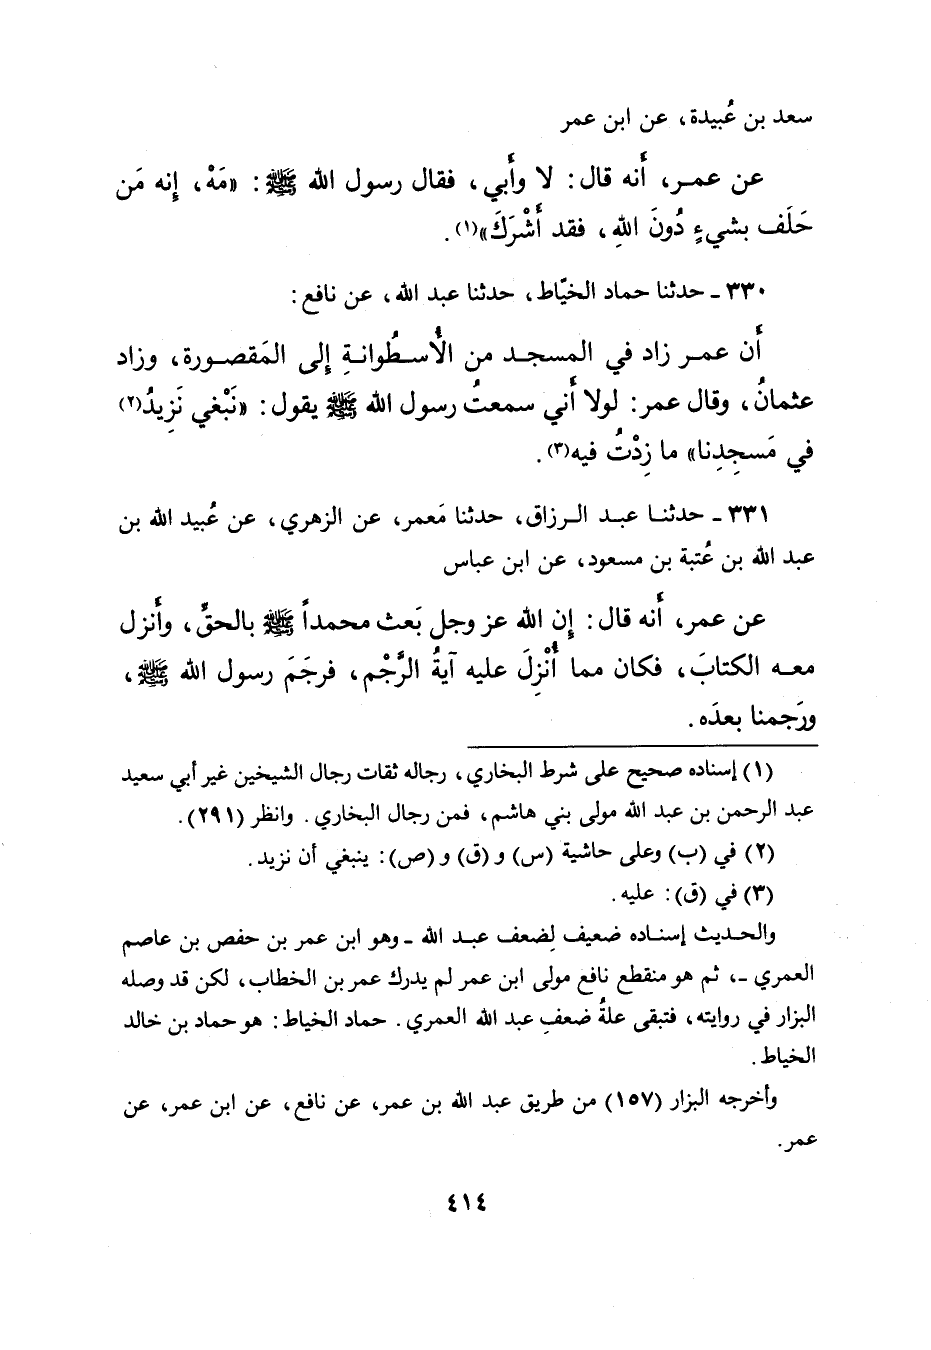 سعد بن عُبيدة، عن ابن عمر
عن عمـر، أَنه قال: لا وأَبي، فقال رسول الله ﷺ: «مَهْ، إِنه مَن
حَلَف بشيءٍ دُونَ اللهِ، فقد أَشْرَكَ»(١).
٣٣٠ ـ حدثنا حماد الخيّاط، حدثنا عبد الله، عن نافع:
أَن عمـر زاد في المسجـد من الأُسـطُوانـةِ إِلى المَقصـورة، وزاد
عثمانُ، وقال عمر: لولا أَني سمعتُ رسول الله ﷺ يقول: «نَبْغي نَزِيدُ(٢)
في مَسجِدِنا» ما زِدْتُ فيه(٣).
٣٣١ ـ حدثنـا عبـد الـرزاق، حدثنا مَعمر، عن الزهري، عن عُبيد الله بن
عبد الله بن عُتبة بن مسعود، عن ابن عباس
عن عمر، أَنه قال: إِن الله عز وجل بَعث محمداً ﷺ بالحقِّ، وأَنزل
معـه الكتابَ، فكان مما أُنْزِلَ عليه آيةُ الرَّجْم، فرجَمَ رسول الله ﷺ،
ورَجمنا بعدَه.
(١) إسناده صحيح على شرط البخاري، رجاله ثقات رجال الشيخين غير أبي سعيد
عبد الرحمن بن عبد الله مولى بني هاشم، فمن رجال البخاري. وانظر (٢٩١).
(٢) في (ب) وعلى حاشية (س) و(ق) و(ص): ينبغي أن نزيد.
(٣) في (ق): عليه.
والحـديث إسنـاده ضعيف لِضعف عبـد الله ـ وهو ابن عمر بن حفص بن عاصم
العمري ـ، ثم هو منقطع نافع مولى ابن عمر لم يدرك عمر بن الخطاب، لكن قد وصله
البزار في روايته، فتبقى علةُ ضعفِ عبد الله العمري. حماد الخياط: هو حماد بن خالد
الخياط.
وأخرجه البزار (١٥٧) من طريق عبد الله بن عمر، عن نافع، عن ابن عمر، عن
عمر.
٤١٤